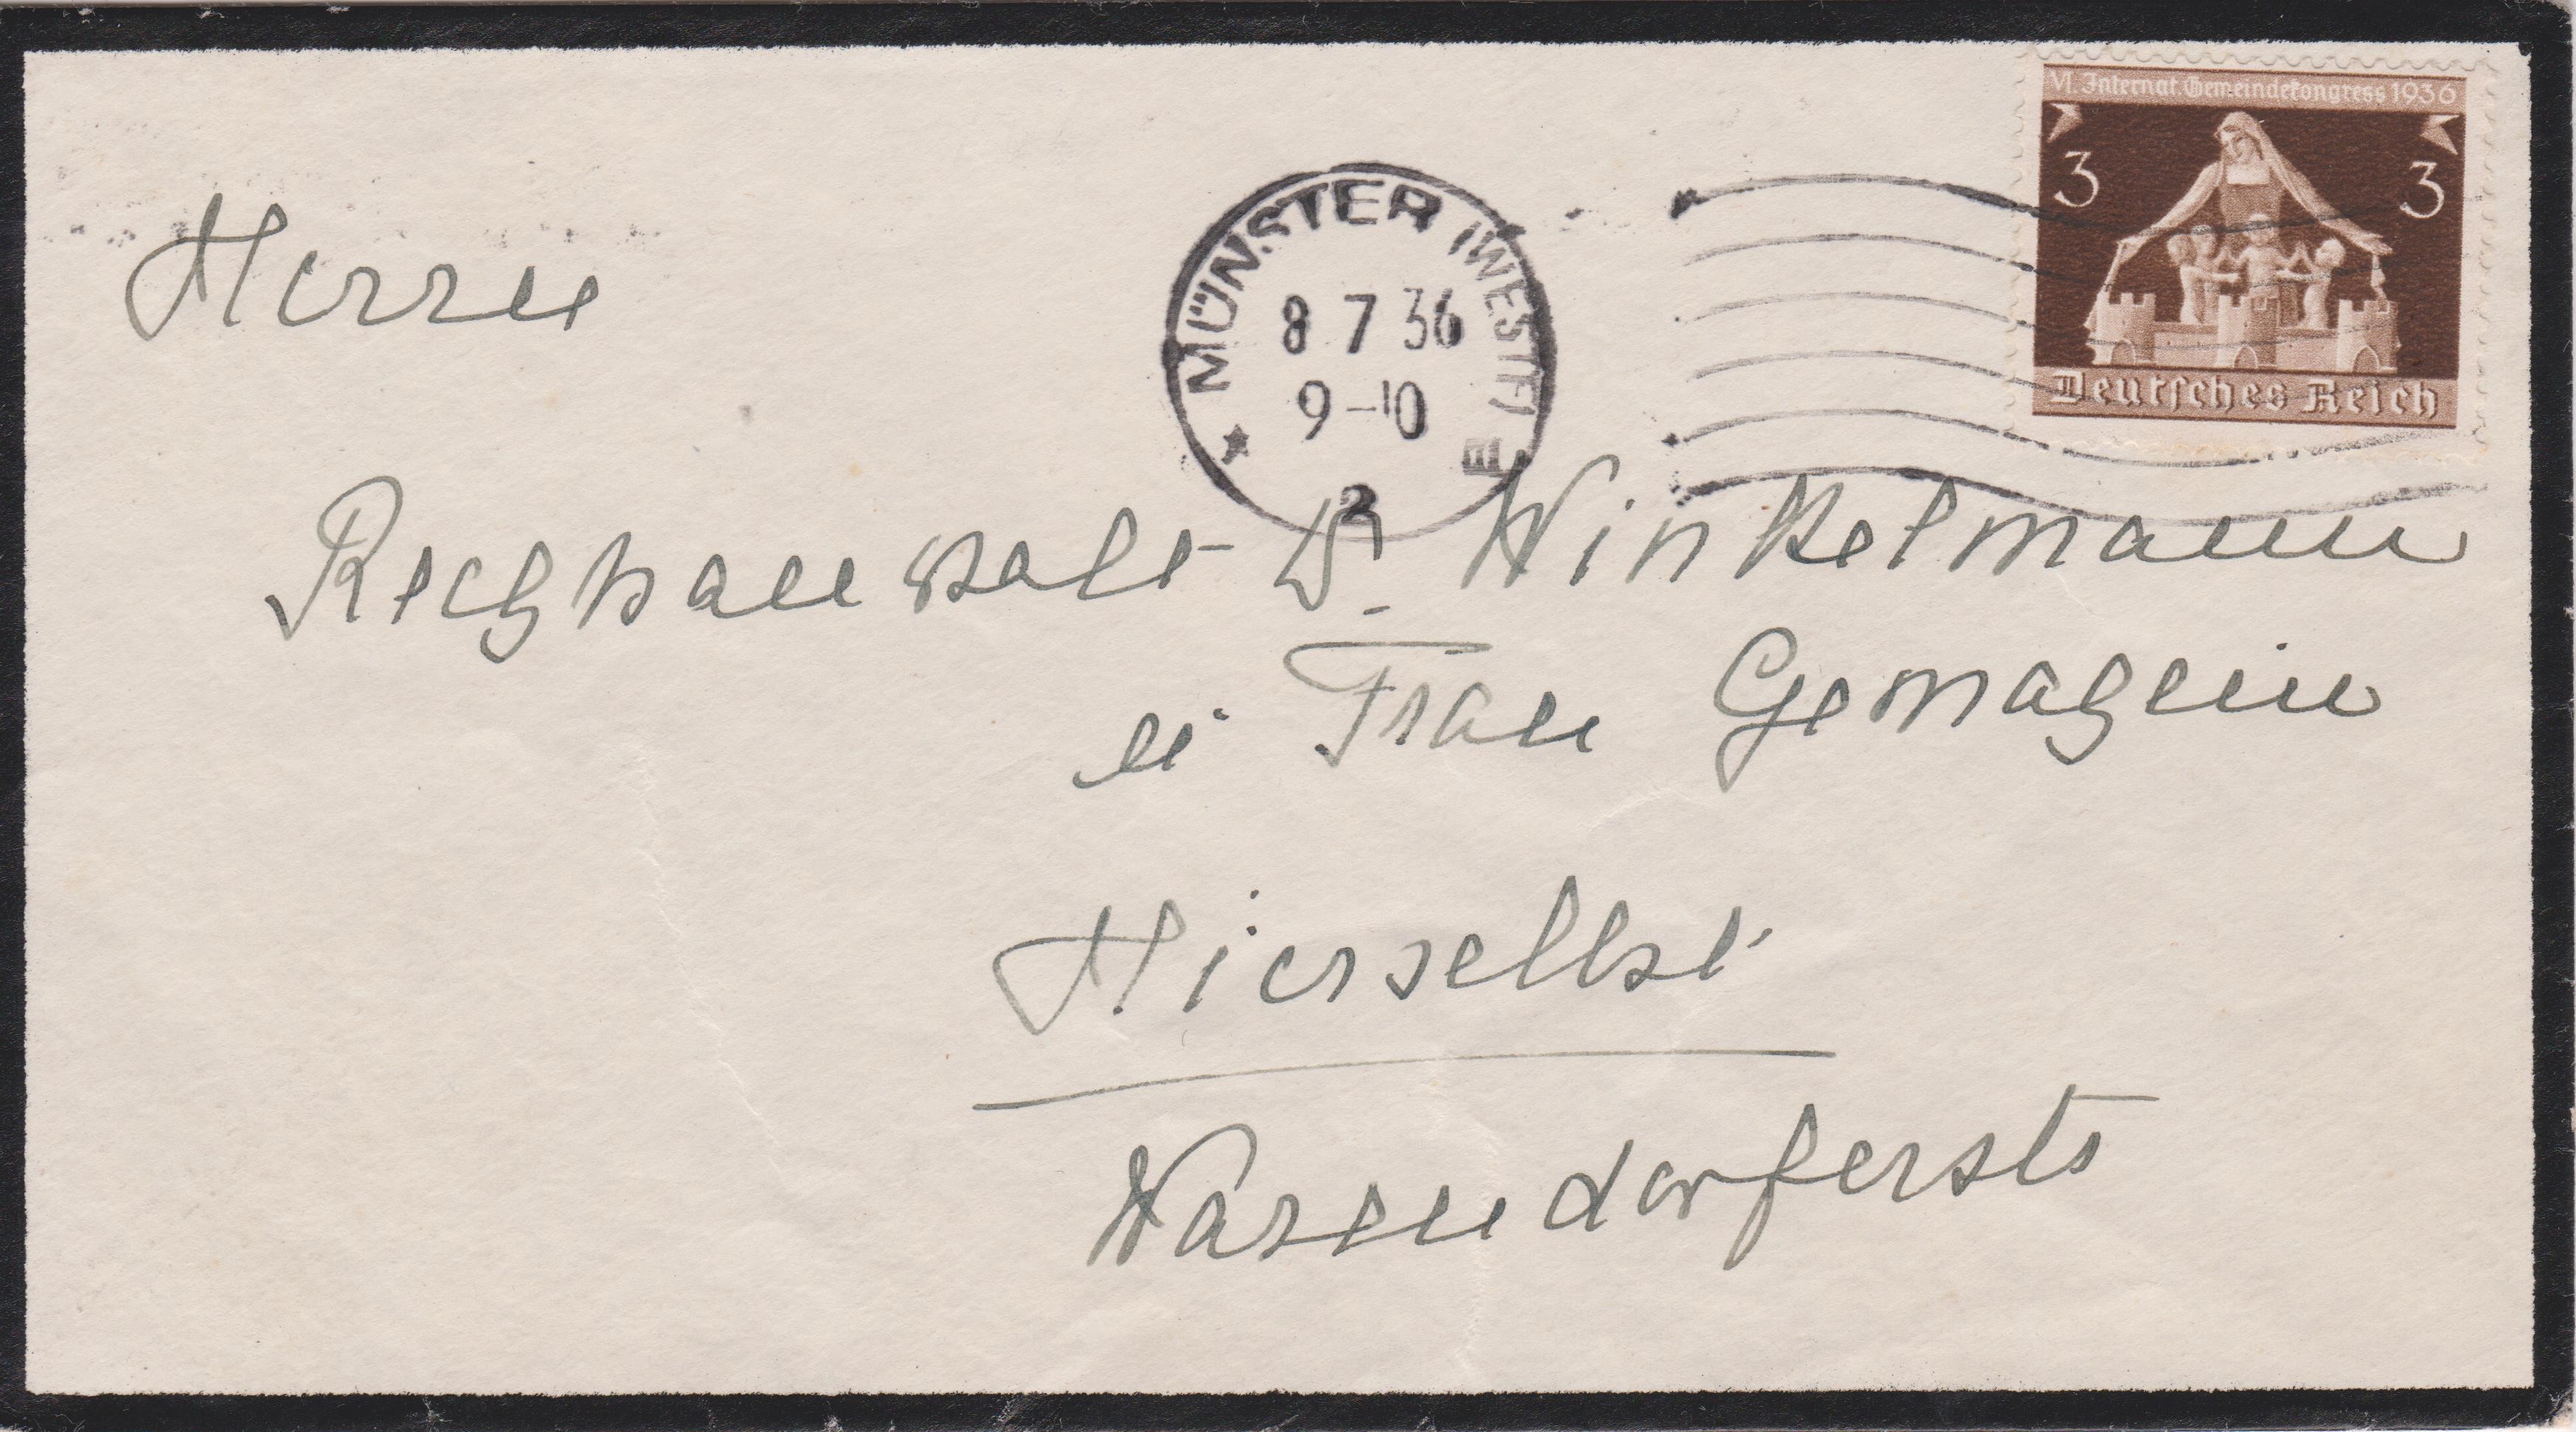 VI. Internat. Gemeindekongress 1936
3 3
Deutsches Reich
MÜNSTER (WESTF)
8 7 36
9-10
* 2 m
Herrn
Rechtsanwalt Dr. Winkelmann
u Frau Gemahlin
Hierselbst
Warendorferstr